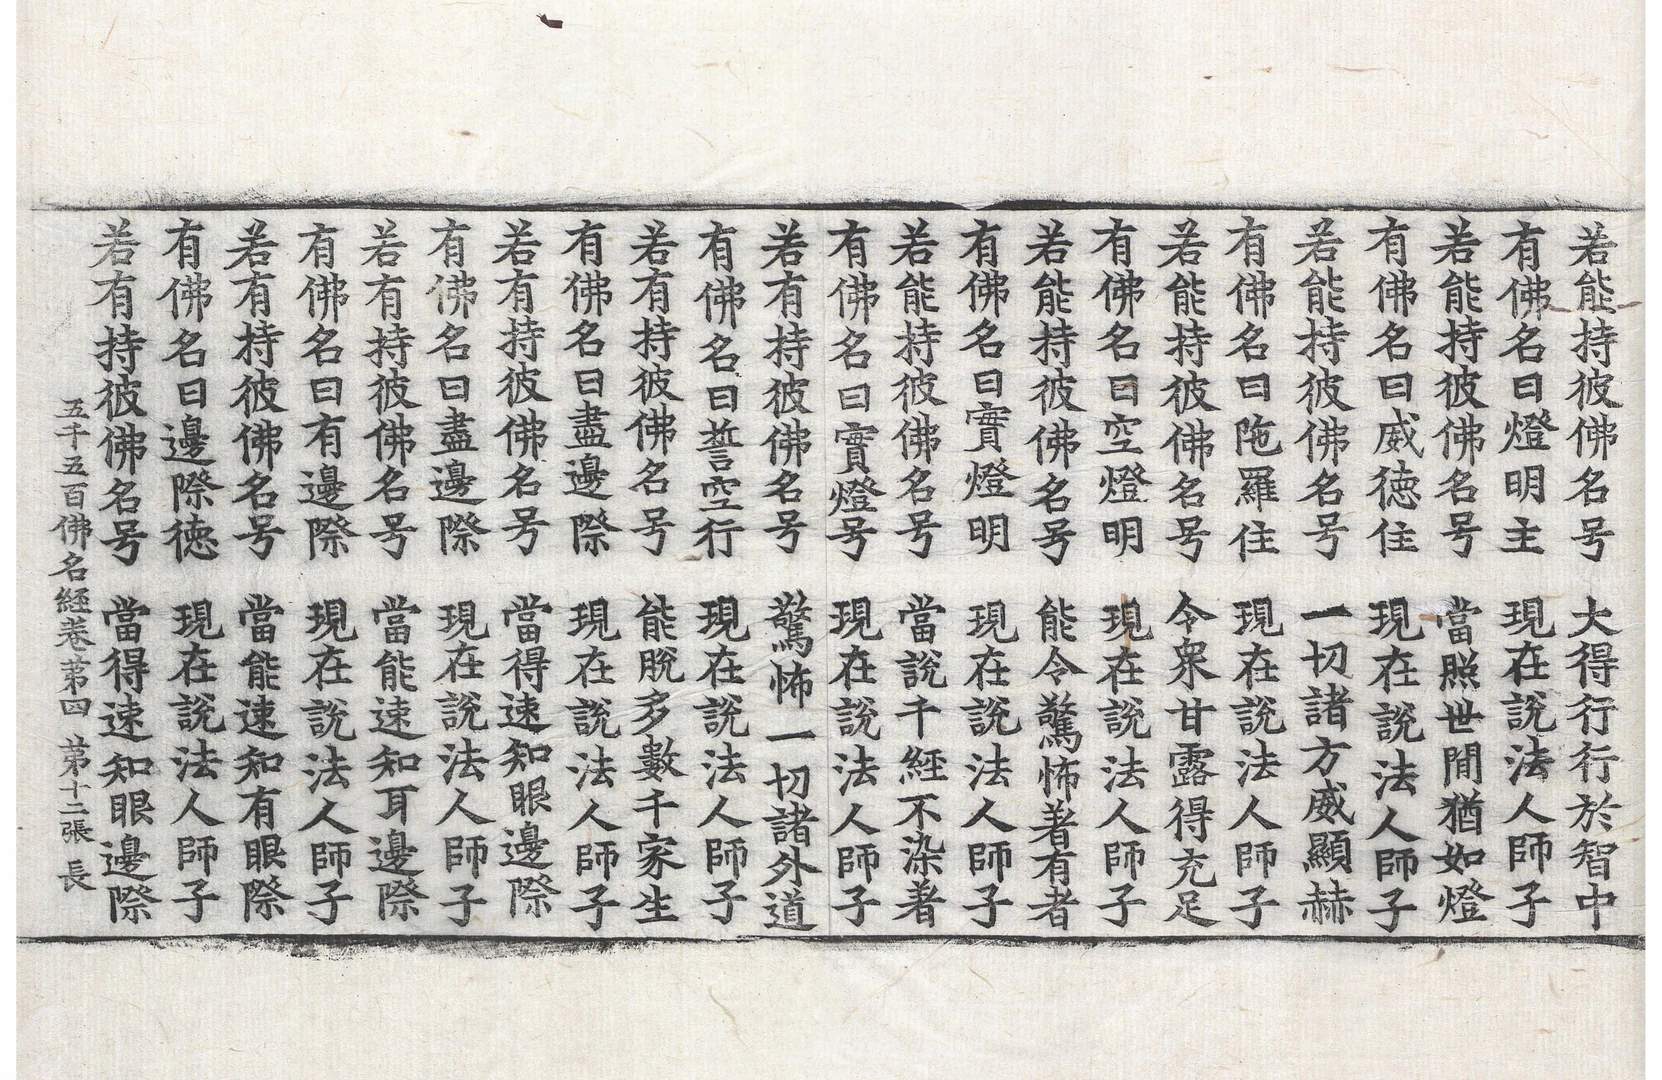 若能持彼佛名号　大得行行於智中
有佛名曰燈明主　現在說法人師子
若能持彼佛名号　當照世間猶如燈
有佛名曰威德住　現在說法人師子
若能持彼佛名号　一切諸方威顯赫
有佛名曰陁羅住　現在說法人師子
若能持彼佛名号　令衆甘露得充足
有佛名曰空燈明　現在說法人師子
若能持彼佛名号　能令驚怖著有者
有佛名曰實燈明　現在說法人師子
若能持彼佛名号　當說千經不染著
有佛名曰實燈号　現在說法人師子
若有持彼佛名号　驚怖一切諸外道
有佛名曰誓空行　現在說法人師子
若有持彼佛名号　能脫多數千家生
有佛名曰盡邊際　現在說法人師子
若有持彼佛名号　當得速知眼邊際
有佛名曰盡邊際　現在說法人師子
若有持彼佛名号　當能速知耳邊際
有佛名曰有邊際　現在說法人師子
若有持彼佛名号　當能速知有眼際
有佛名曰邊際德　現在說法人師子
若有持彼佛名号　當得速知眼邊際
五千五百佛名經卷第四　第十二張　長